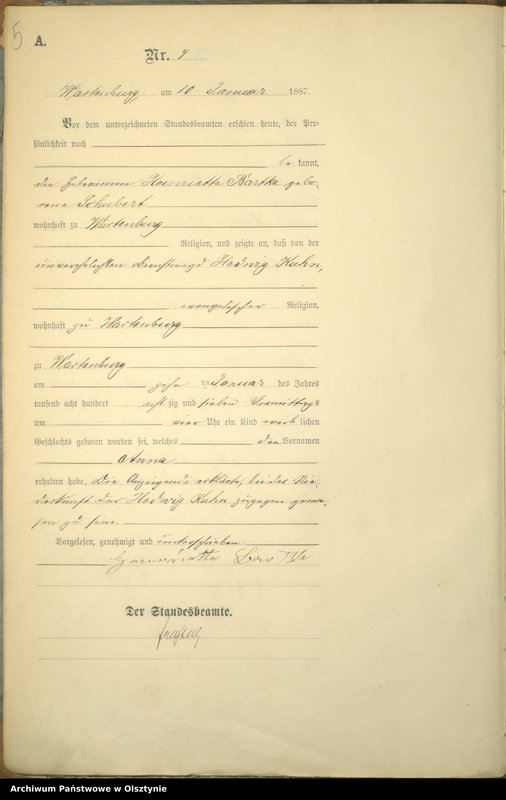 5
A.
Nr. 4
Wartenburg am 10 Januar 1887.
Vor dem unterzeichneten Standesbeamten erschien heute, der Per-
sönlichkeit nach
be kannt,
die Hebamme Heinriette Bartke gebo-
rene Schubert
wohnhaft zu Wartenburg
Religion, und zeigte an, daß von der
unverehelichten Dienstmagd Hedwig Kuhn,
evangelischer Religion,
wohnhaft zu Wartenburg
zu Wartenburg
am zehn ten Januar des Jahres
tausend acht hundert acht zig und sieben Vormittags
um vier Uhr ein Kind weib lichen
Geschlechts geboren worden sei, welches den Vornamen
Anna
erhalten habe. Die Anzeigende erklärte, bei der Nie-
derkunft der Hedwig Kuhn zugegen gewe-
sen zu sein.
Vorgelesen, genehmigt und unterschrieben.
Der Standesbeamte.
Archiwum Państwowe w Olsztynie